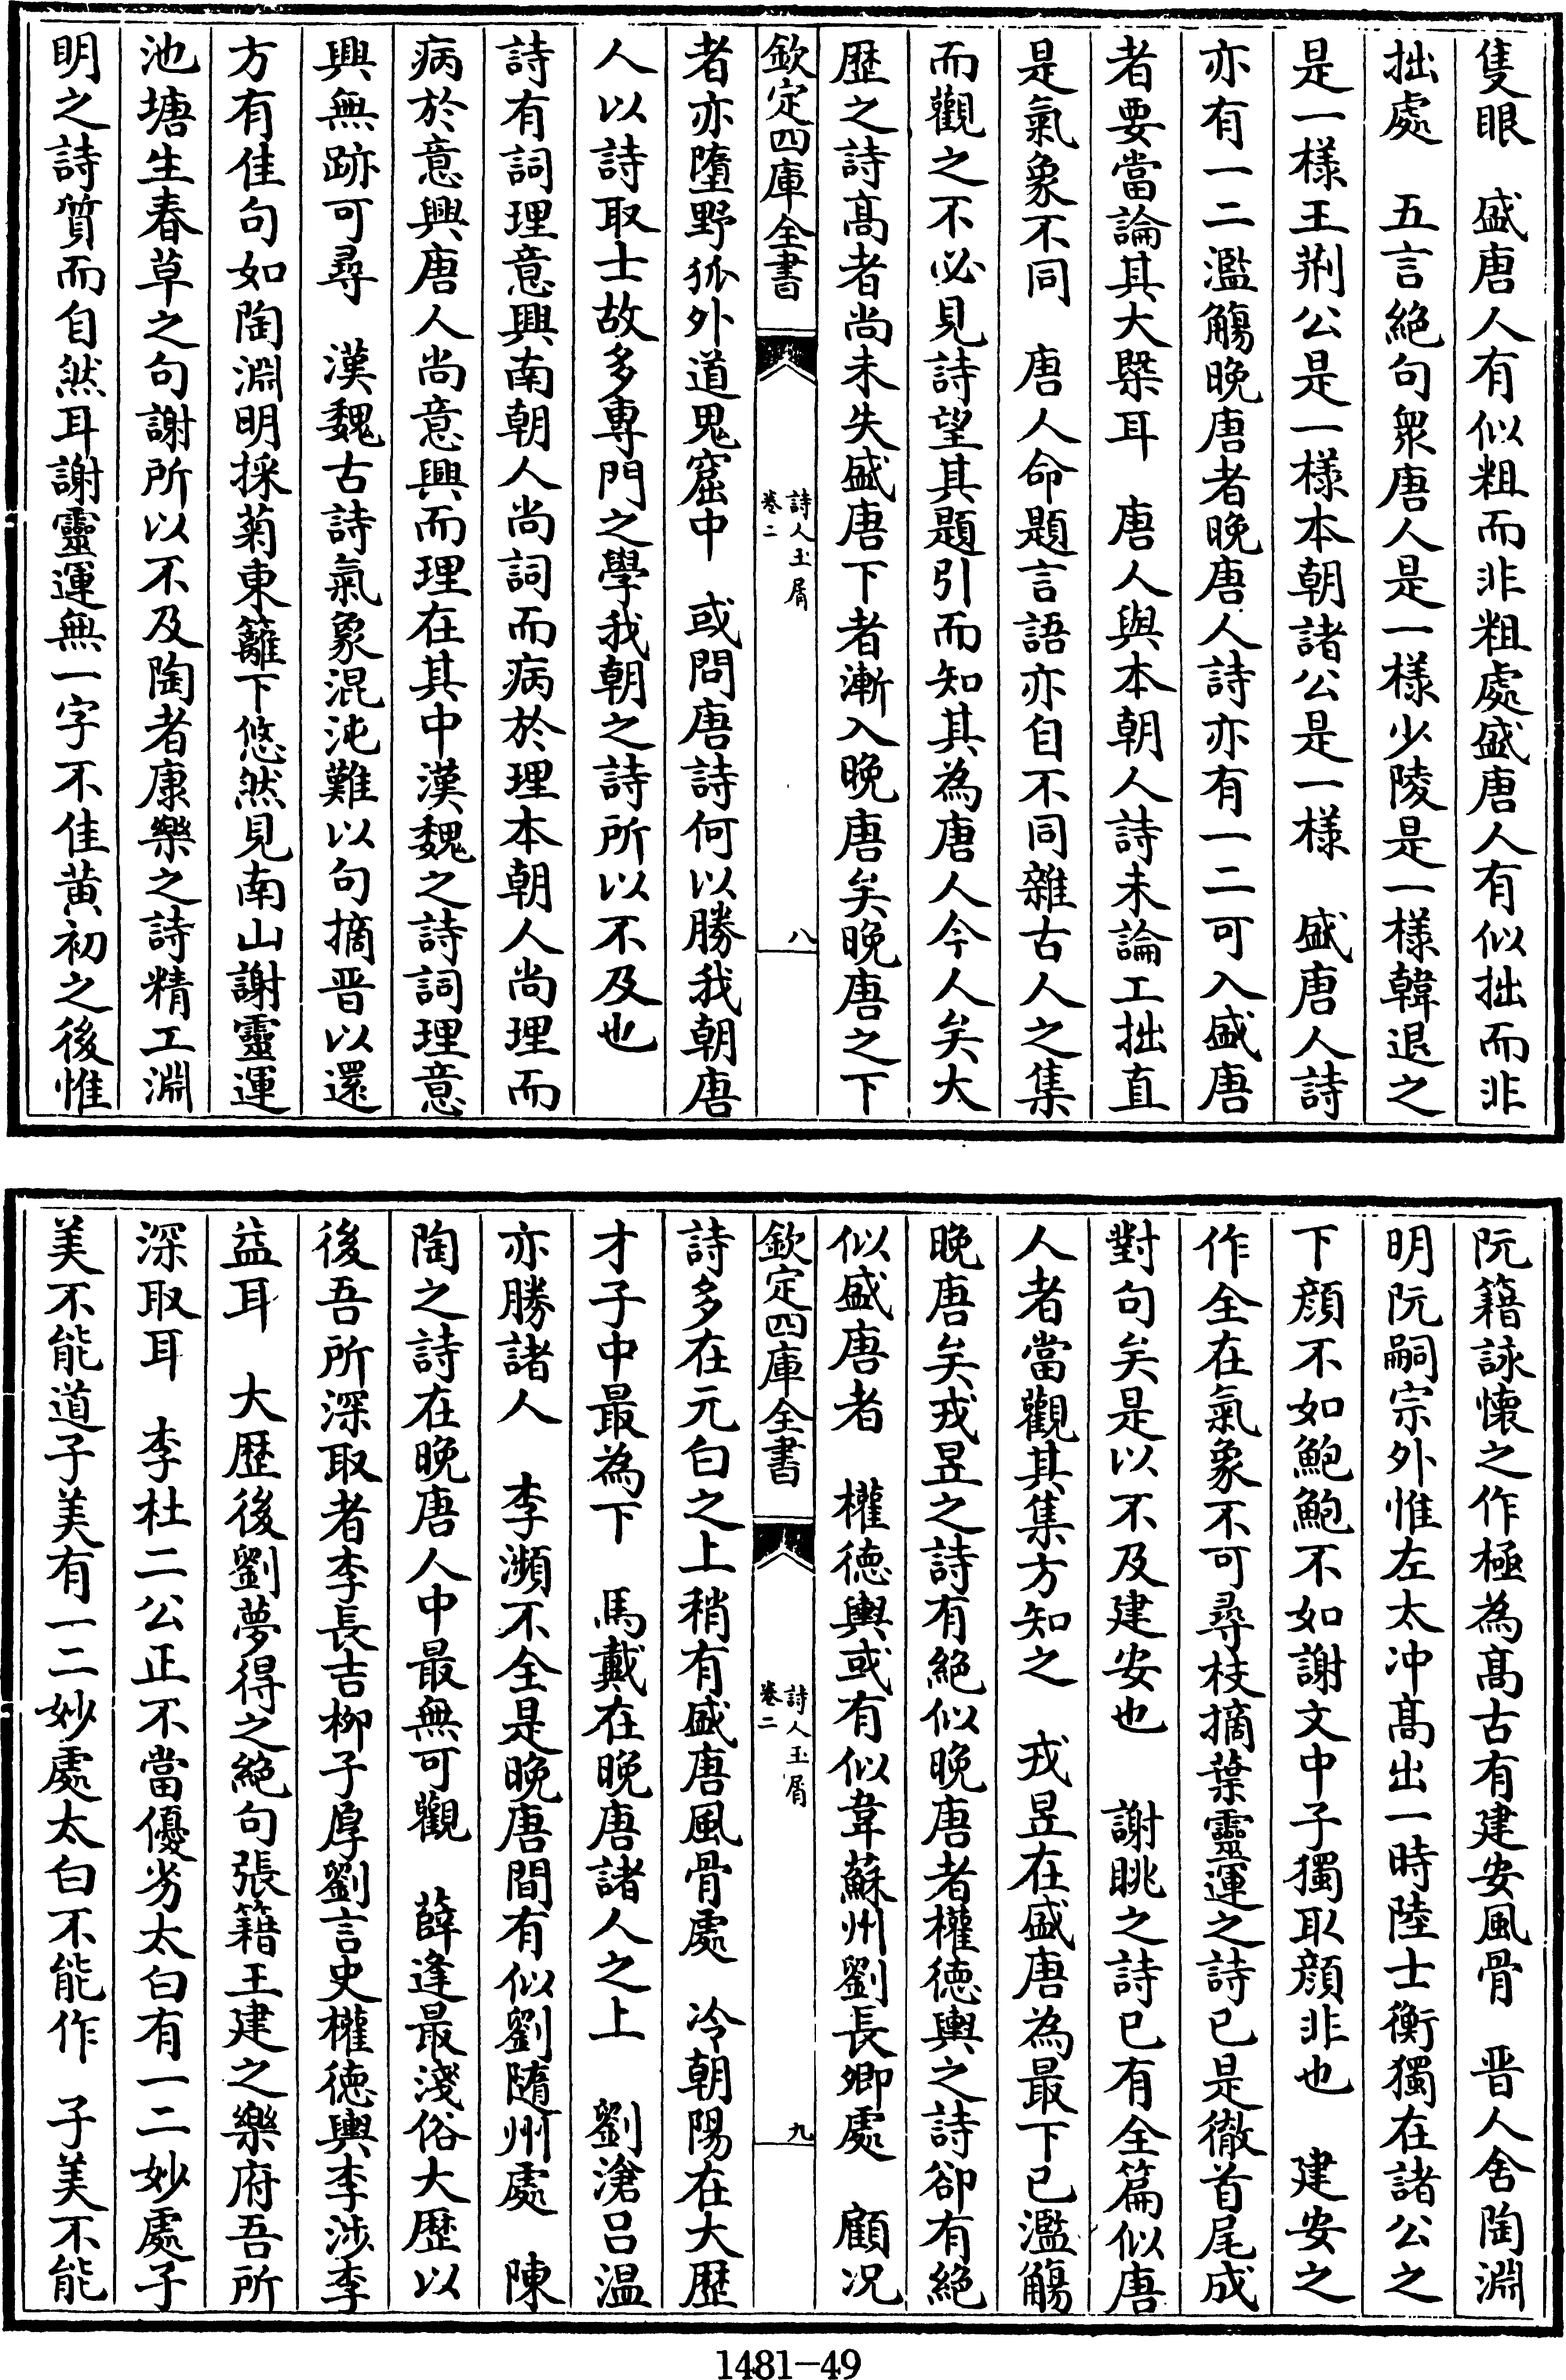 隻眼　盛唐人有似粗而非粗處盛唐人有似拙而非
拙處　五言絕句衆唐人是一樣少陵是一樣韓退之
是一樣王荆公是一樣本朝諸公是一樣　盛唐人詩
亦有一二濫觴晚唐者晚唐人詩亦有一二可入盛唐
者要當論其大槩耳　唐人與本朝人詩未論工拙直
是氣象不同　唐人命題言語亦自不同雜古人之集
而觀之不必見詩望其題引而知其為唐人今人矣大
歴之詩髙者尚未失盛唐下者漸入晚唐矣晚唐之下
欽定四庫全書
詩人玉屑
卷二
八
者亦墮野狐外道鬼窟中　或問唐詩何以勝我朝唐
人以詩取士故多專門之學我朝之詩所以不及也
詩有詞理意興南朝人尚詞而病於理本朝人尚理而
病於意興唐人尚意興而理在其中漢魏之詩詞理意
興無跡可尋　漢魏古詩氣象混沌難以句摘晉以還
方有佳句如陶淵明採菊東籬下悠然見南山謝靈運
池塘生春草之句謝所以不及陶者康樂之詩精工淵
明之詩質而自然耳謝靈運無一字不佳黄初之後惟
阮籍詠懷之作極為髙古有建安風骨　晋人舍陶淵
明阮嗣宗外惟左太冲髙出一時陸士衡獨在諸公之
下顔不如鮑鮑不如謝文中子獨取顔非也　建安之
作全在氣象不可尋枝摘葉靈運之詩已是徹首尾成
對句矣是以不及建安也　謝眺之詩已有全篇似唐
人者當觀其集方知之　戎昱在盛唐為最下已濫觴
晚唐矣戎昱之詩有絕似晚唐者權徳輿之詩卻有絕
似盛唐者　權徳輿或有似韋蘇州劉長卿處　顧况
欽定四庫全書
詩人玉屑
卷二
九
詩多在元白之上稍有盛唐風骨處　冷朝陽在大歴
才子中最為下　馬戴在晚唐諸人之上　劉滄吕温
亦勝諸人　李瀕不全是晚唐間有似劉隨州處　陳
陶之詩在晚唐人中最無可觀　薛逢最淺俗大歴以
後吾所深取者李長吉柳子厚劉言史權徳輿李涉李
益耳　大歴後劉夢得之絕句張籍王建之樂府吾所
深取耳　李杜二公正不當優劣太白有一二妙處子
美不能道子美有一二妙處太白不能作　子美不能
1481-49